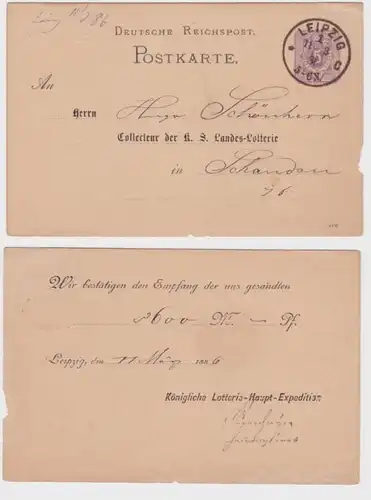 86
DEUTSCHE REICHSPOST.
POSTKARTE.
LEIPZIG
An
Herrn Hugo Schönherr
Collecteur der K. S. Landes-Lotterie
in Schandau
Wir bestätigen den Empfang der uns gesandten
5600 M. — Pf.
Leipzig, den 11 März 1886
Königliche Lotterie-Haupt-Expedition